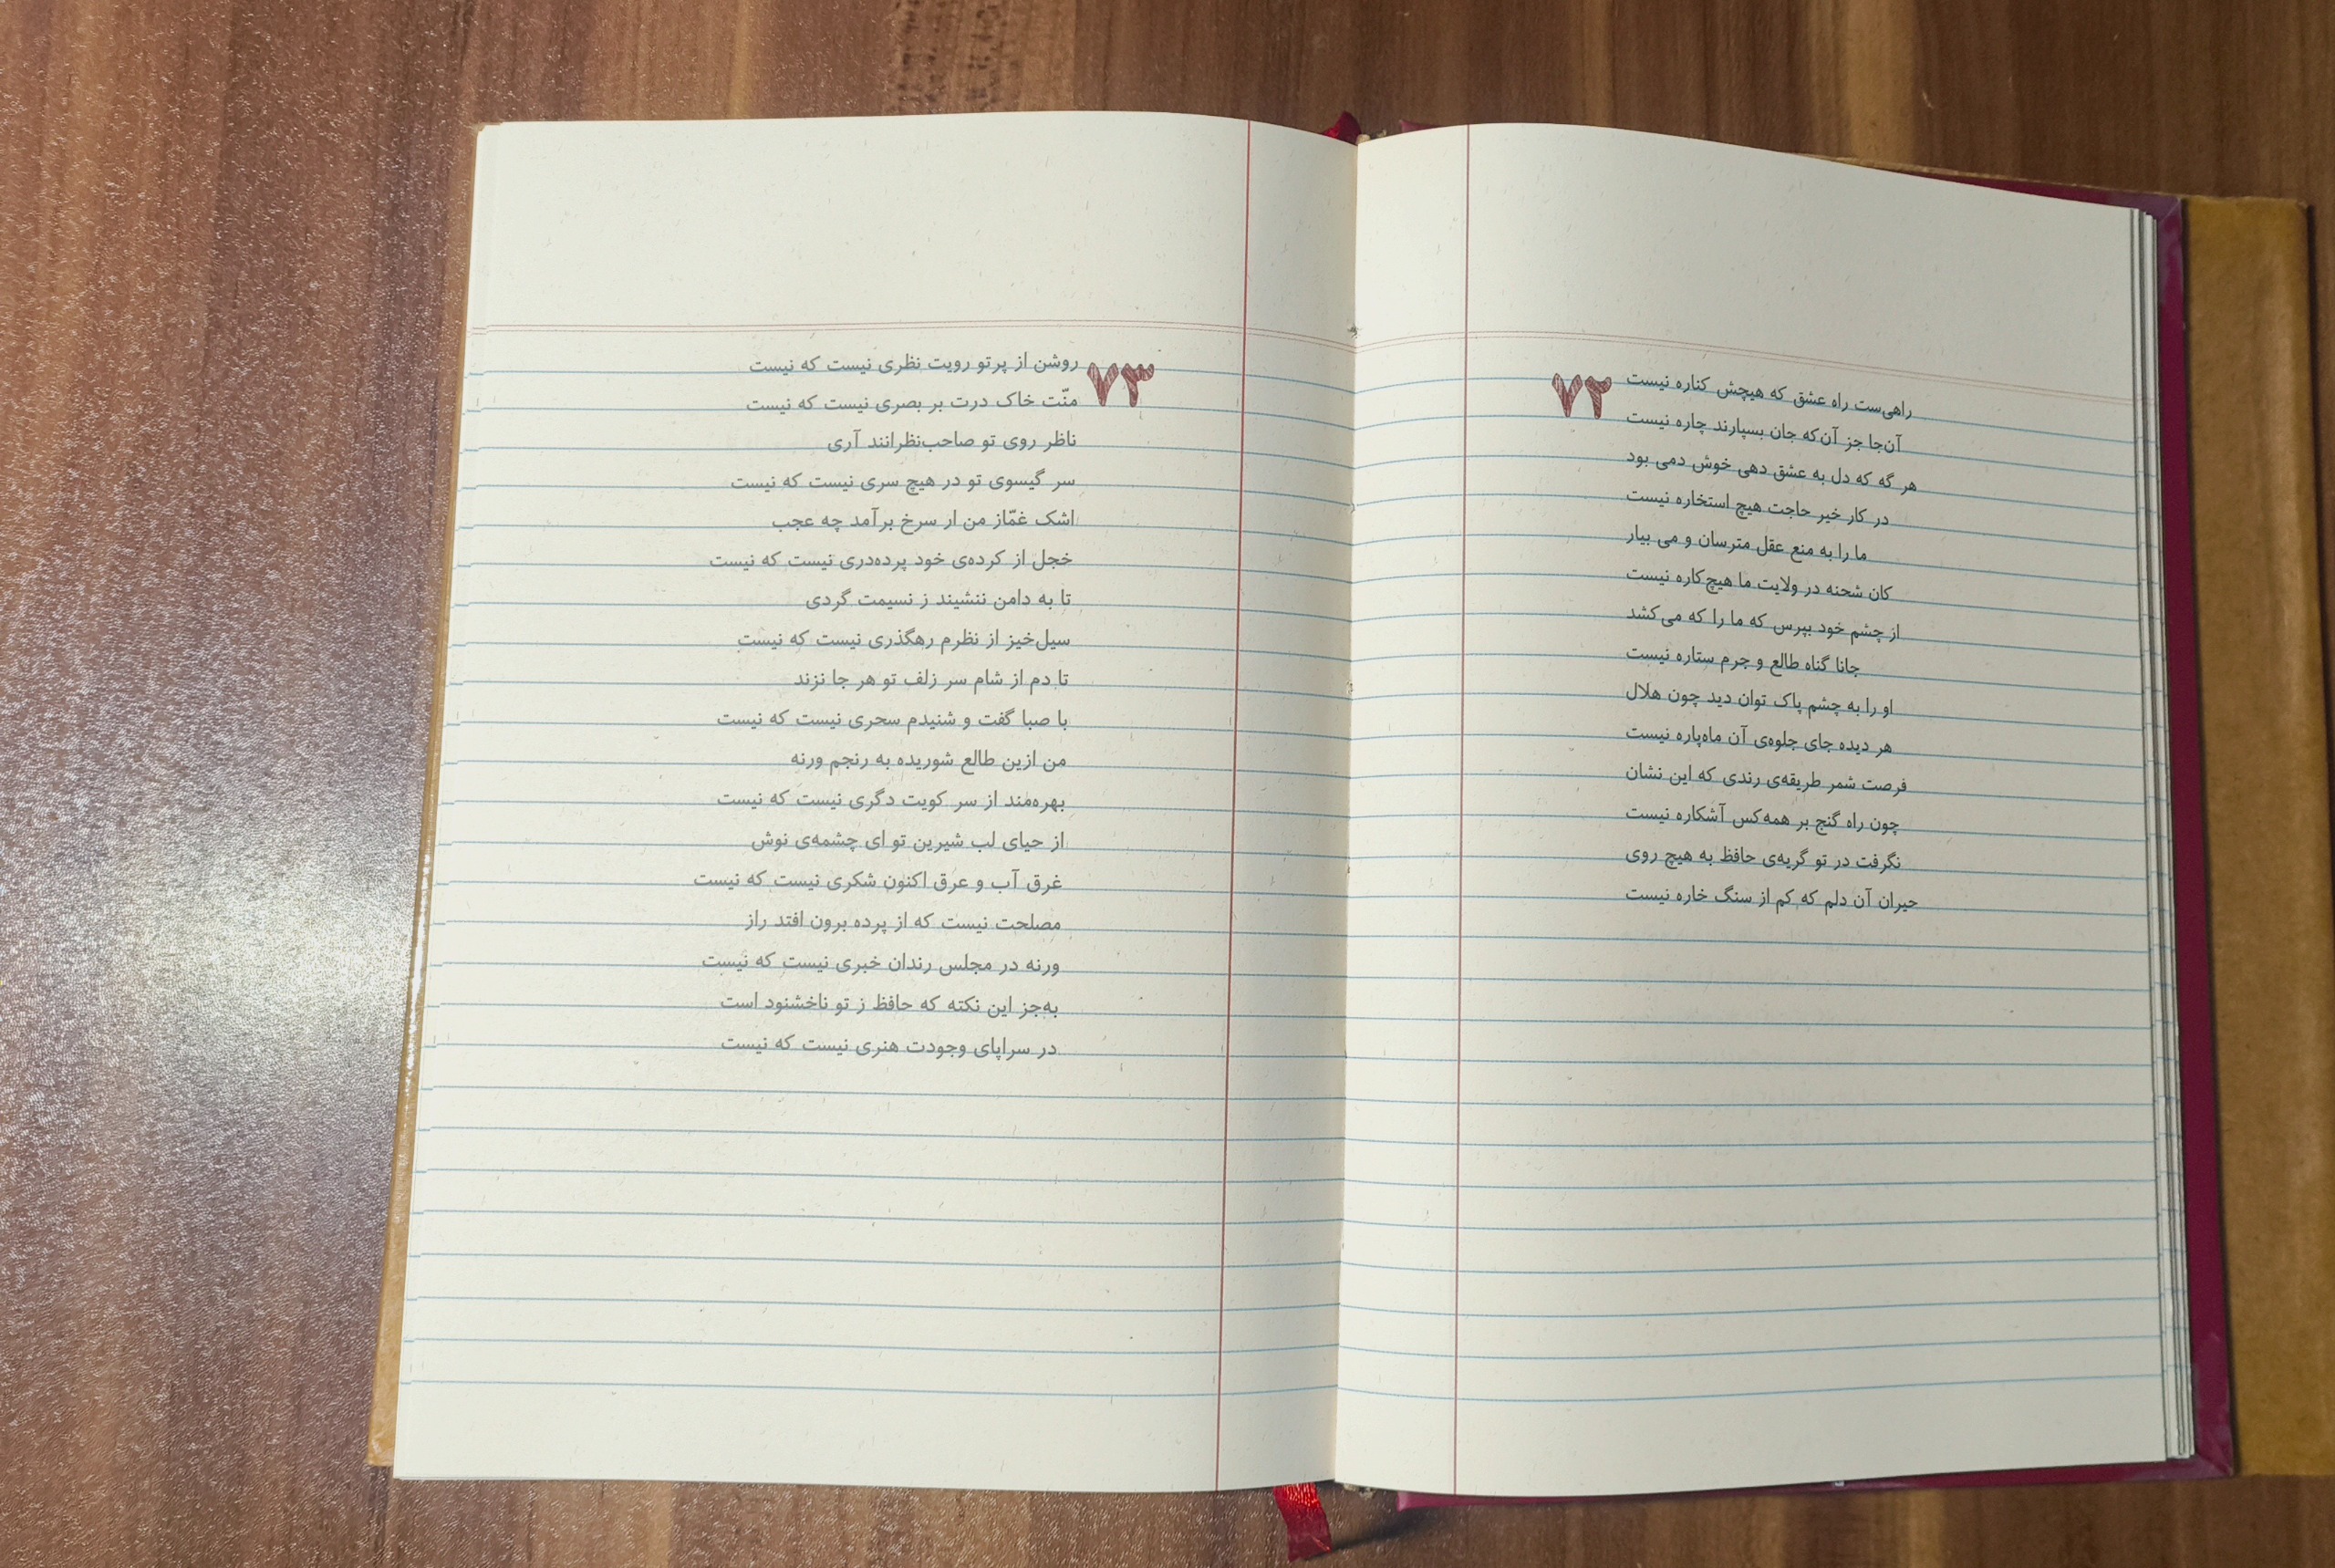 ۷۲
راهی‌ست راه عشق که هیچش کناره نیست
آن‌جا جز آن‌که جان بسپارند چاره نیست
هر گه که دل به عشق دهی خوش دمی بود
در کار خیر حاجت هیچ استخاره نیست
ما را به منع عقل مترسان و می بیار
کان شحنه در ولایت ما هیچ‌کاره نیست
از چشم خود بپرس که ما را که می‌کشد
جانا گناه طالع و جرم ستاره نیست
او را به چشم پاک توان دید چون هلال
هر دیده جای جلوه‌ی آن ماه‌پاره نیست
فرصت شمر طریقه‌ی رندی که این نشان
چون راه گنج بر همه‌کس آشکاره نیست
نگرفت در تو گریه‌ی حافظ به هیچ روی
حیران آن دلم که کم از سنگ خاره نیست
۷۳
روشن از پرتو رویت نظری نیست که نیست
منّت خاک درت بر بصری نیست که نیست
ناظر روی تو صاحب‌نظرانند آری
سر گیسوی تو در هیچ سری نیست که نیست
اشک غمّاز من ار سرخ برآمد چه عجب
خجل از کرده‌ی خود پرده‌دری نیست که نیست
تا به دامن ننشیند ز نسیمت گردی
سیل‌خیز از نظرم رهگذری نیست که نیست
تا دم از شام سر زلف تو هر جا نزند
با صبا گفت و شنیدم سحری نیست که نیست
من ازین طالع شوریده به رنجم ورنه
بهره‌مند از سر کویت دگری نیست که نیست
از حیای لب شیرین تو ای چشمه‌ی نوش
غرق آب و عرق اکنون شکری نیست که نیست
مصلحت نیست که از پرده برون افتد راز
ورنه در مجلس رندان خبری نیست که نیست
به‌جز این نکته که حافظ ز تو ناخشنود است
در سراپای وجودت هنری نیست که نیست